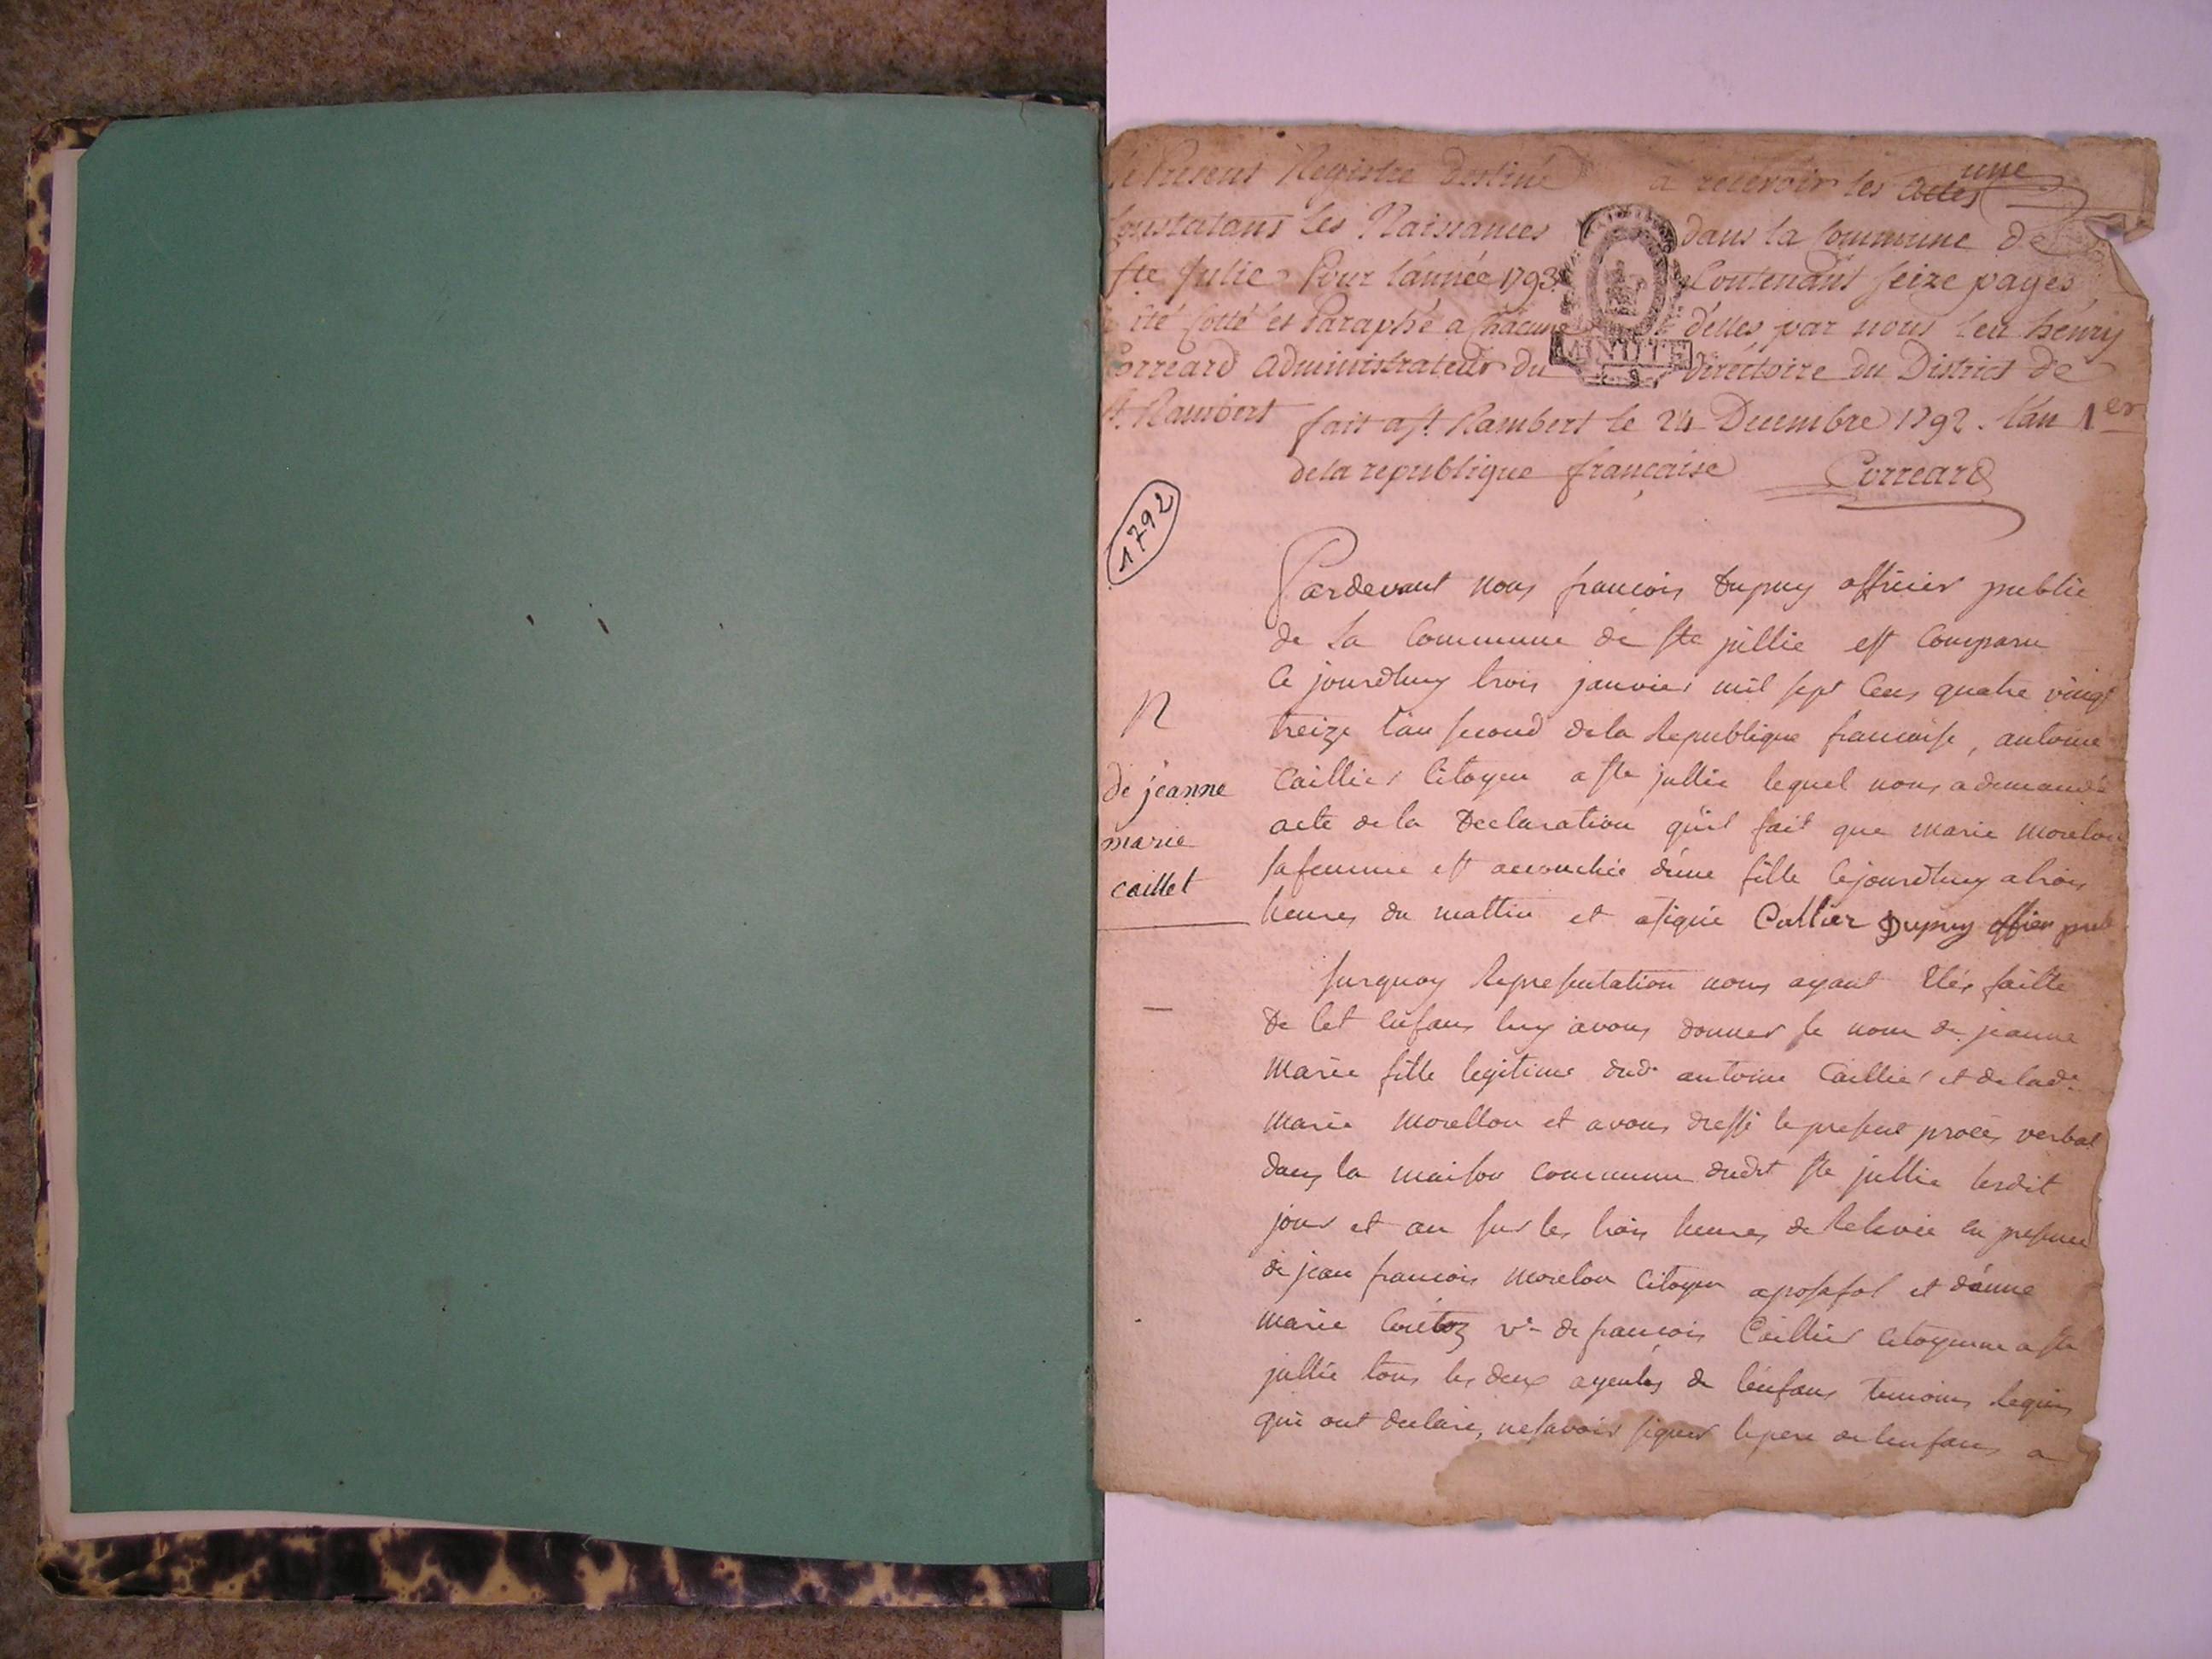 une
Le Present Registre Destiné à recevoir les actes
Constatans les Naissances dans la Commune de
Ste Julie Pour l'année 1793. Contenant seize pages,
a été cotté et Paraphé a Chacune d'elles, par nous leu henry
Correard Administrateur du Directoire du District de
St. Rambert
MINUTE
fait a St. Rambert le 24 Decembre 1792. l'an 1er
de la republique française Correard
1792
Pardevant nous francois Dupuy officier public
de la Commune de Ste jullie est Comparu
Ce jourdhuy trois janvier mil sept Cens quatre vingt
treize l'an second de la Republique francoise, antoine
Caillier Citoyen a Ste jullie lequel nous a demandé
acte de la Declaration qu'il fait que marie morelon
sa femme est accouchée d'une fille Cejourdhuy a trois
heures du mattin et a signé Callier Dupuy officier pub
N
de jeanne
marie
caillet
surquoy Representation nous ayant Etés faitte
De Cet Enfans luy avons donner le nom de jeanne
Marie fille legitime dud. antoine Caillier et de lade.
Marie Morellon et avons dressé le present procès verbal
dans la maison commune dudt Ste jullie lesdit
jour et an sur les trois heures de Relevée en presence
de jean francois morelon Citoyen a posafol et d'anne
marie ve de francois Caillier Citoyenne a Ste
jullie tous les deux de l'enfans temoins Requis
qui ont declaré, ne savoir signer le pere de lenfans a